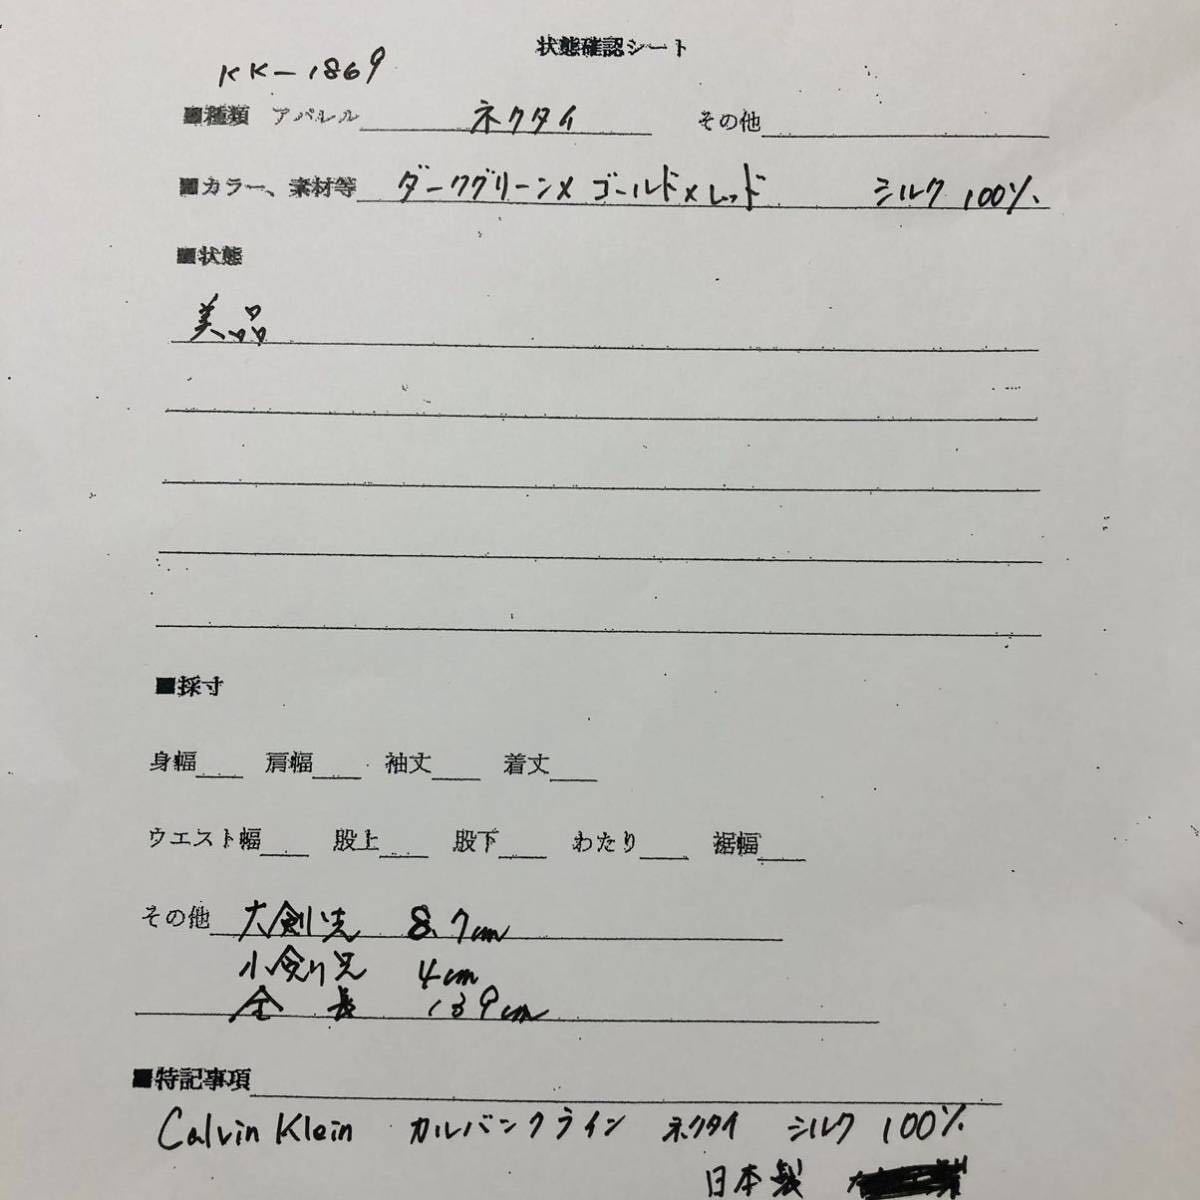 状態確認シート
KK-1869
■種類 アパレル ネクタイ その他
■カラー、素材等 ダークグリーン×ゴールド×レッド シルク 100%
■状態
美品
■採寸
身幅 肩幅 袖丈 着丈
ウエスト幅 股上 股下 わたり 裾幅
その他 大剣先 8.7cm
小剣先 4cm
全長 139cm
■特記事項
Calvin Klein カルバンクライン ネクタイ シルク 100%
日本製